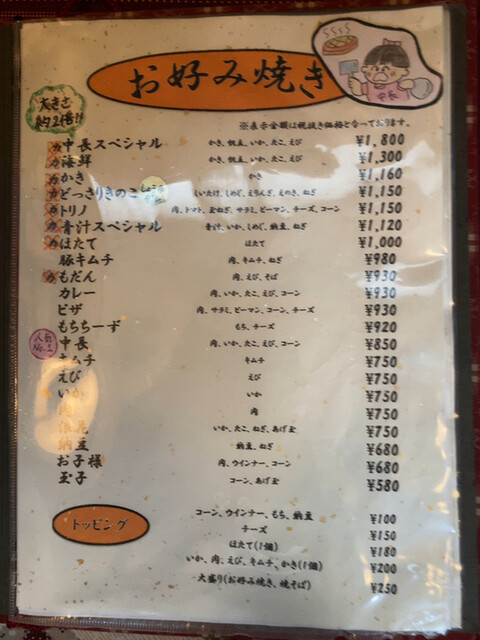 お好み焼き
中長
大きさ
約2倍!!
※表示金額は税抜き価格となっております。
中長スペシャル かき、帆立、いか、たこ、えび ¥1,800
海鮮 かき、帆立、いか、たこ、えび ¥1,300
かき かき ¥1,160
どっさりきのこ しいたけ、しめじ、えりんぎ、えのき、ねぎ ¥1,150
トリノ 肉、トマト、玉ねぎ、サラミ、ピーマン、チーズ、コーン ¥1,150
青汁スペシャル 青汁、いか、しめじ、納豆、ねぎ ¥1,120
ほたて ほたて ¥1,000
豚キムチ 肉、キムチ、ねぎ ¥980
もだん 肉、えび、そば ¥930
カレー 肉、いか、たこ、えび、コーン ¥930
ピザ 肉、サラミ、ピーマン、コーン、チーズ ¥930
もちちーず もち、チーズ ¥920
人気No.1 中長 肉、いか、たこ、えび、コーン ¥850
キムチ キムチ ¥750
えび えび ¥750
いか いか ¥750
肉 肉 ¥750
いか、たこ、ねぎ、あげ玉 ¥750
納豆 納豆、ねぎ ¥680
お子様 肉、ウインナー、コーン ¥680
玉子 コーン、あげ玉 ¥580
トッピング
コーン、ウインナー、もち、納豆 ¥100
チーズ ¥150
ほたて(1個) ¥180
いか、肉、えび、キムチ、かき(1個) ¥200
大盛り(お好み焼き、焼そば) ¥250